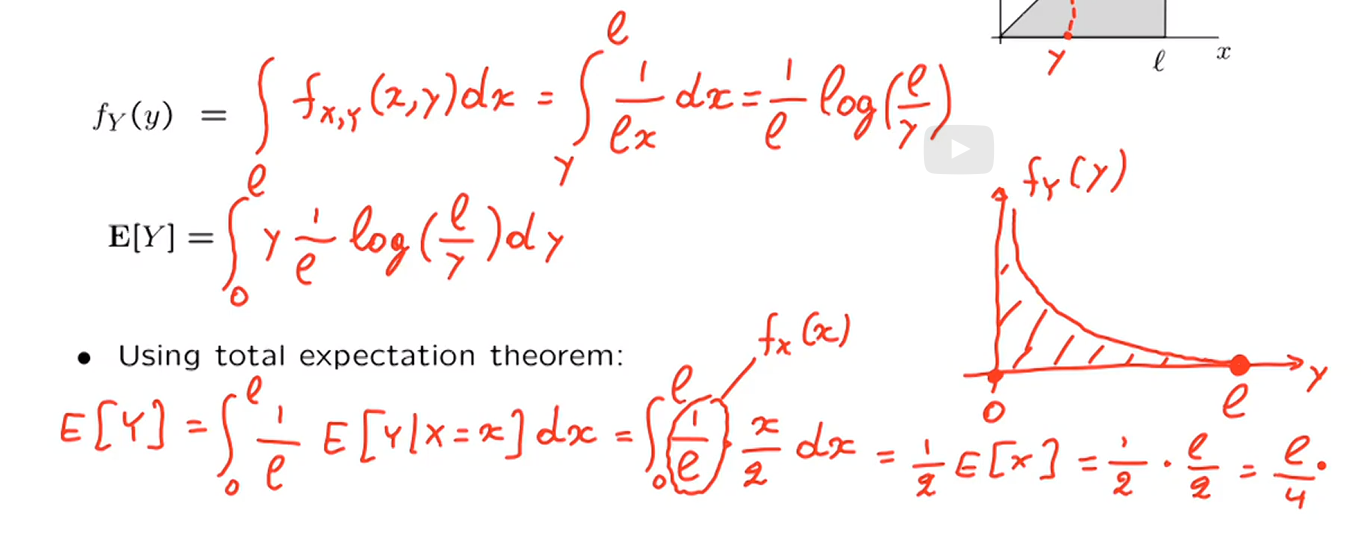 y ℓ x
f_Y(y) = ∫ f_{X,Y}(x,y)dx = ∫_y^ℓ 1/(ℓx) dx = 1/ℓ log(ℓ/y)
f_Y(y)
E[Y] = ∫_0^ℓ y 1/ℓ log(ℓ/y) dy
f_X(x)
• Using total expectation theorem:
0 ℓ y
E[Y] = ∫_0^ℓ 1/ℓ E[Y|X=x] dx = ∫_0^ℓ 1/ℓ · x/2 dx = 1/2 E[X] = 1/2 · ℓ/2 = ℓ/4.